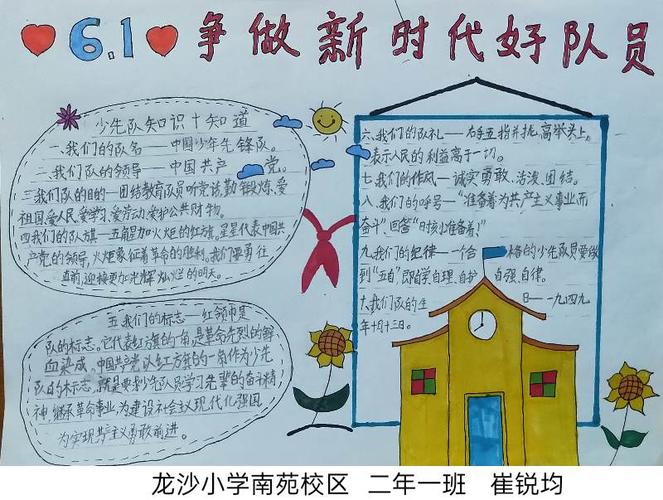 6.1 争做新时代好队员
少先队知识十知道
一、我们的队名——中国少年先锋队。
二、我们队的领导——中国共产党。
三、我们队的目的—团结教育队员听党话,勤锻炼,爱
祖国爱人民,爱学习,爱劳动,爱护公共财物。
四、我们的队旗—五角星加火炬的红旗。星星代表中国共
产党的领导,火炬象征着革命的胜利。我们要勇往
直前,迎接更加光辉灿烂的明天。
五、我们的标志—红领巾是
队的标志。它代表红旗的一角,是革命先烈的鲜
血染成。中国共产党以红方旗的一角作为少先
队的标志,就是要少先队员学习先辈的奋斗精
神,继承革命事业,为建设社会主义现代化强国
为实现共产主义勇敢前进。
六、我们的队礼——右手五指并拢,高举头上。
表示人民的利益高于一切。
七、我们的作风—诚实勇敢、活泼、团结。
八、我们的呼号—"准备着为共产主义事业而
奋斗"回答"时刻准备着!"
九、我们的纪律—一个合格的少先队员要做
到"五自"即自学自理、自护自强、自律。
十、我们队的生日—一九四九
年十月十三日。
龙沙小学南苑校区 二年一班 崔锐均